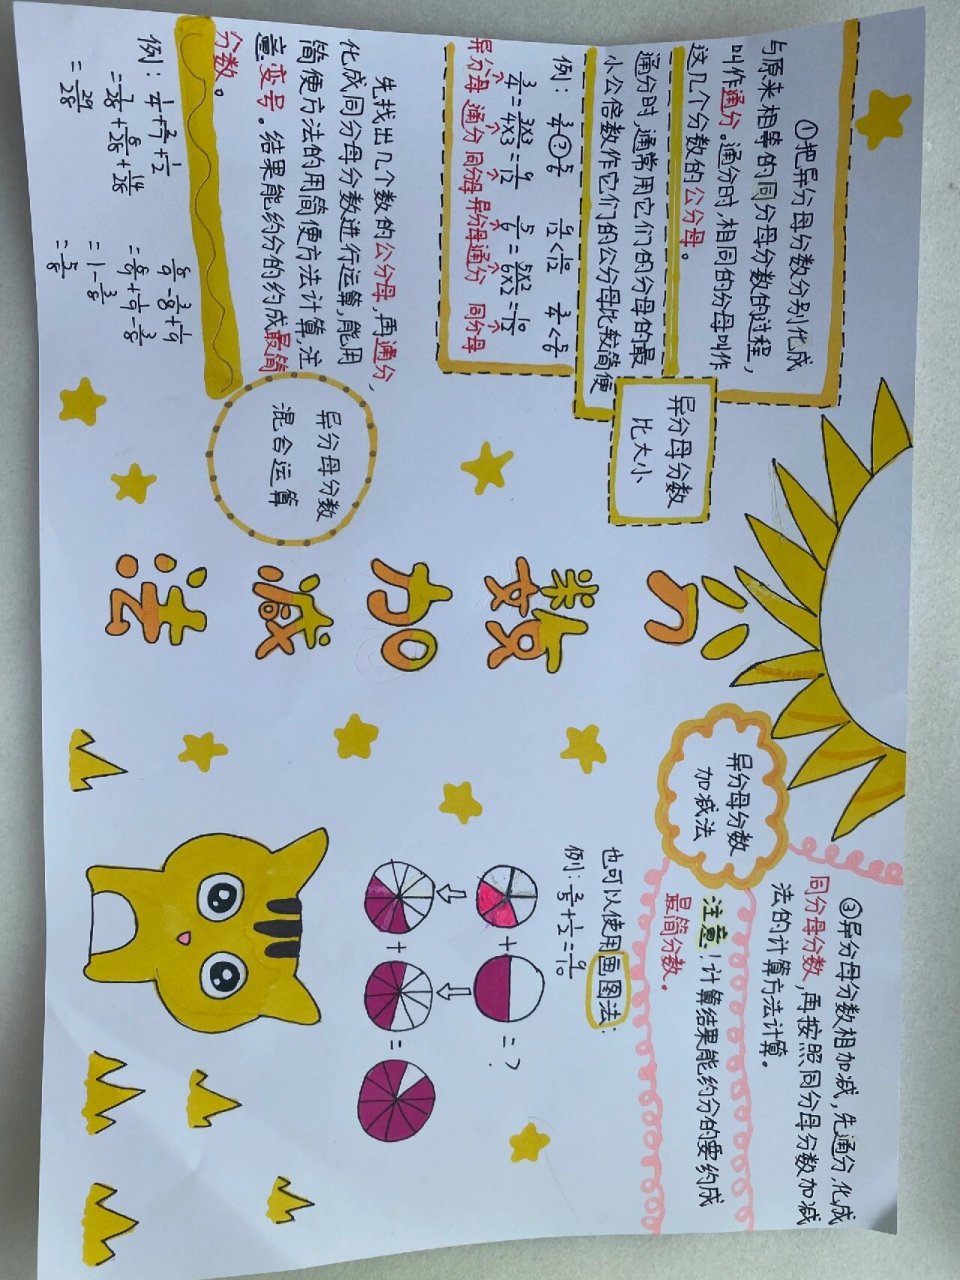 分数加减法
异分母分数
比大小
①把异分母分数分别化成
与原来相等的同分母分数的过程,
叫作通分。通分时,相同的分母叫作
这几个分数的公分母。
通分时,通常用它们的分母的最
小公倍数作它们的公分母比较简便
例: 3/4 ? 5/6 9/12<10/12 3/4<5/6
3/4=3×3/4×3=9/12 5/6=5×2/6×2=10/12
异分母 通分 同分母 异分母 通分 同分母
异分母分数
混合运算
先找出几个数的公分母,再通分,
化成同分母分数进行运算,能用
简便方法的用简便方法计算,注
意变号。结果能约分的约成最简
分数。
例: 1/4+2/7+1/2
=7/28+8/28+14/28
=29/28
8/9-3/8+1/9
=8/9+1/9-3/8
=1-3/8
=5/8
异分母分数
加减法
③异分母分数相加减,先通分,化成
同分母分数,再按照同分母分数加减
法的计算方法计算。
注意!计算结果能约分的要约成
最简分数。
也可以使用画图法:
例: 2/5+1/2=9/10
+ = ?
+ =